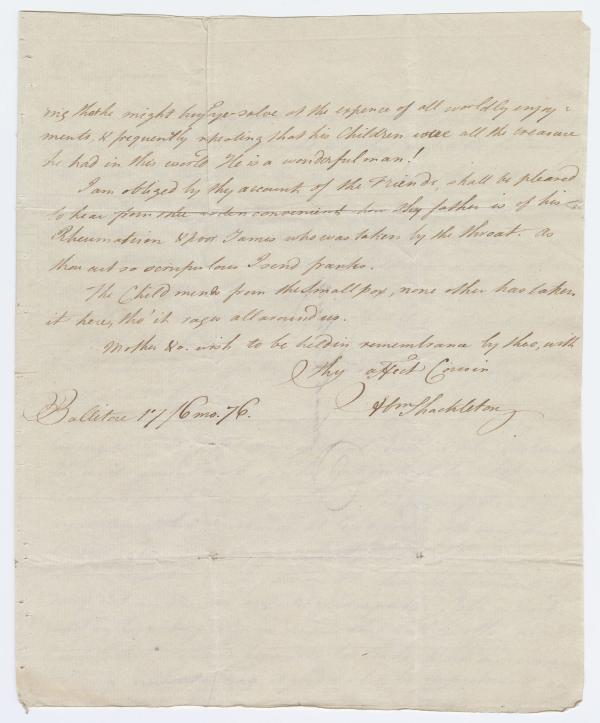 ing that he might buy Eye-salve at the expence of all worldly enjoy-
ments, & frequently repeating that his Children were all the treasure
he had in this world. He is a wonderful man!
I am obliged by thy account of the Friends, shall be pleased
to hear from thee when convenient how thy father is of his
Rheumatism & poor James who was taken by the throat. As
thou art so scrupulous I send franks.
The Child mends from the Small pox, none other has taken
it here, tho' it rages all around us.
Mother &c. wish to be held in remembrance by thee, with
thy affect Cousin
Abm Shackleton
Ballitore 17/6mo. 76.